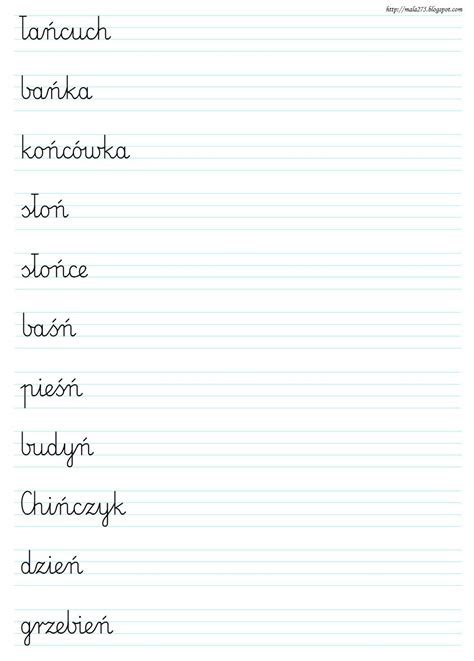 http://mala275.blogspot.com
łańcuch
bańka
końcówka
słoń
słońce
baśń
pieśń
budyń
Chińczyk
dzień
grzebień